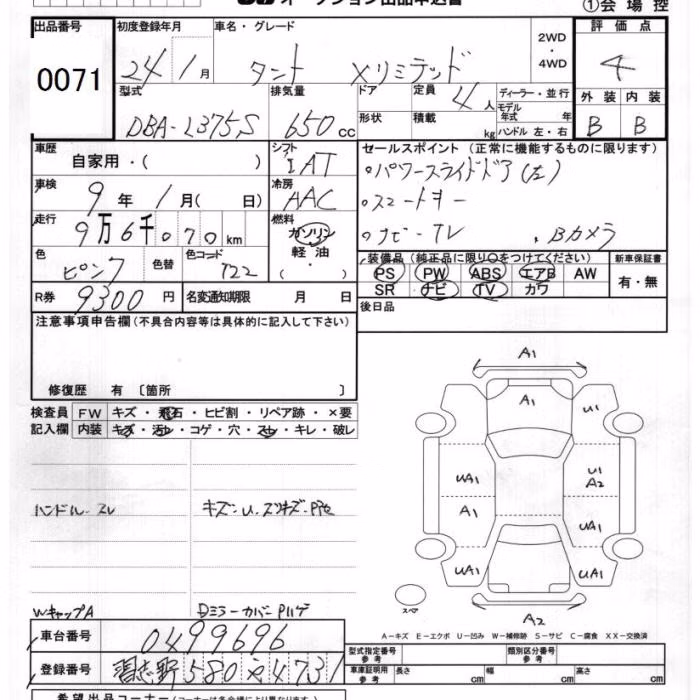 オークション出品申込書 ①会場控
出品番号 初度登録年月 車名・グレード 2WD・4WD 評価点
0071 24/1月 タント Xリミテッド 4
型式 排気量 ドア 定員 4人 ディーラー・並行 外装 内装
DBA-L375S 650cc 形状 積載 kg モデル年式 年 ハンドル 左・右 B B
車歴 自家用・( ) シフト IAT セールスポイント(正常に機能するものに限ります)
車検 9年1月( 日) 冷房 AAC 。パワースライドドア(左)
走行 9万6千070km 燃料 ガソリン・軽油・( ) 。ナビ-TV . Bカメラ
色 ピンク 色替 色コード T22 装備品(純正品に限り○をつけてください) 新車保証書
PS PW ABS エアB AW 有・無
R券 9300円 名変通知期限 月 日 SR ナビ TV カワ
注意事項申告欄(不具合内容等は具体的に記入して下さい) 後日品
修復歴 有 [箇所 ]
検査員 FW キズ・飛石・ヒビ割・リペア跡・×要
記入欄 内装 キズ・汚レ・コゲ・穴・スレ・キレ・破レ
A1
A1 U1
UA1 U1 A2
A1 UA1
UA1 UA1
スペア A2
ハンドル-スレ
WキャップA Dミラーカバー
A-キズ E-エクボ U-凹み W-補修跡 S-サビ C-腐食 XX-交換済
車台番号 0499696
型式指定番号 参考 類別区分番号 参考
登録番号 習志野580 4731
車庫証明用 参考 長さ cm 幅 cm 高さ cm
希望出品コーナー